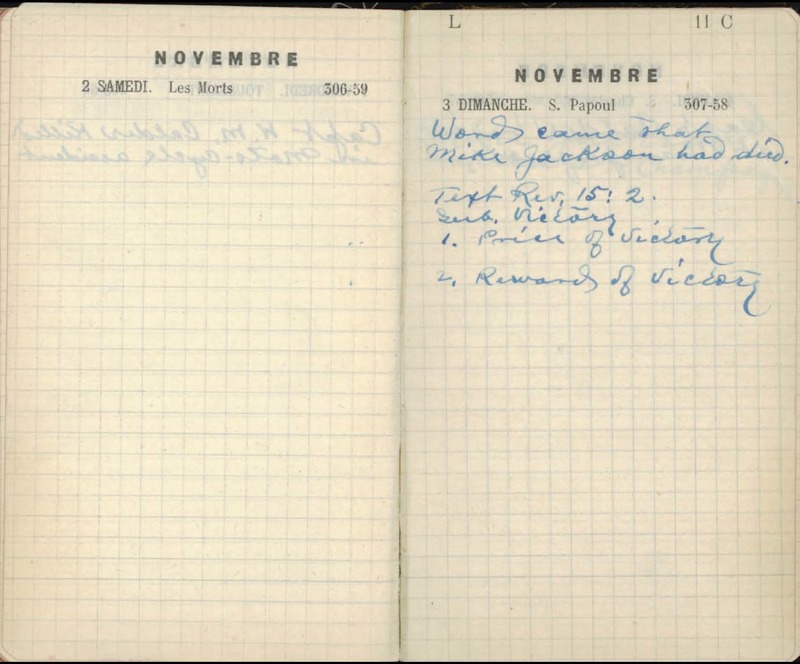 NOVEMBRE
2 SAMEDI. Les Morts 306-59
L 11 C
NOVEMBRE
3 DIMANCHE. S. Papoul 307-58
Word came that
Mike Jackson had died.
Text Rev. 15: 2.
Sub. Victory
1. Price of Victory
2. Reward of Victory